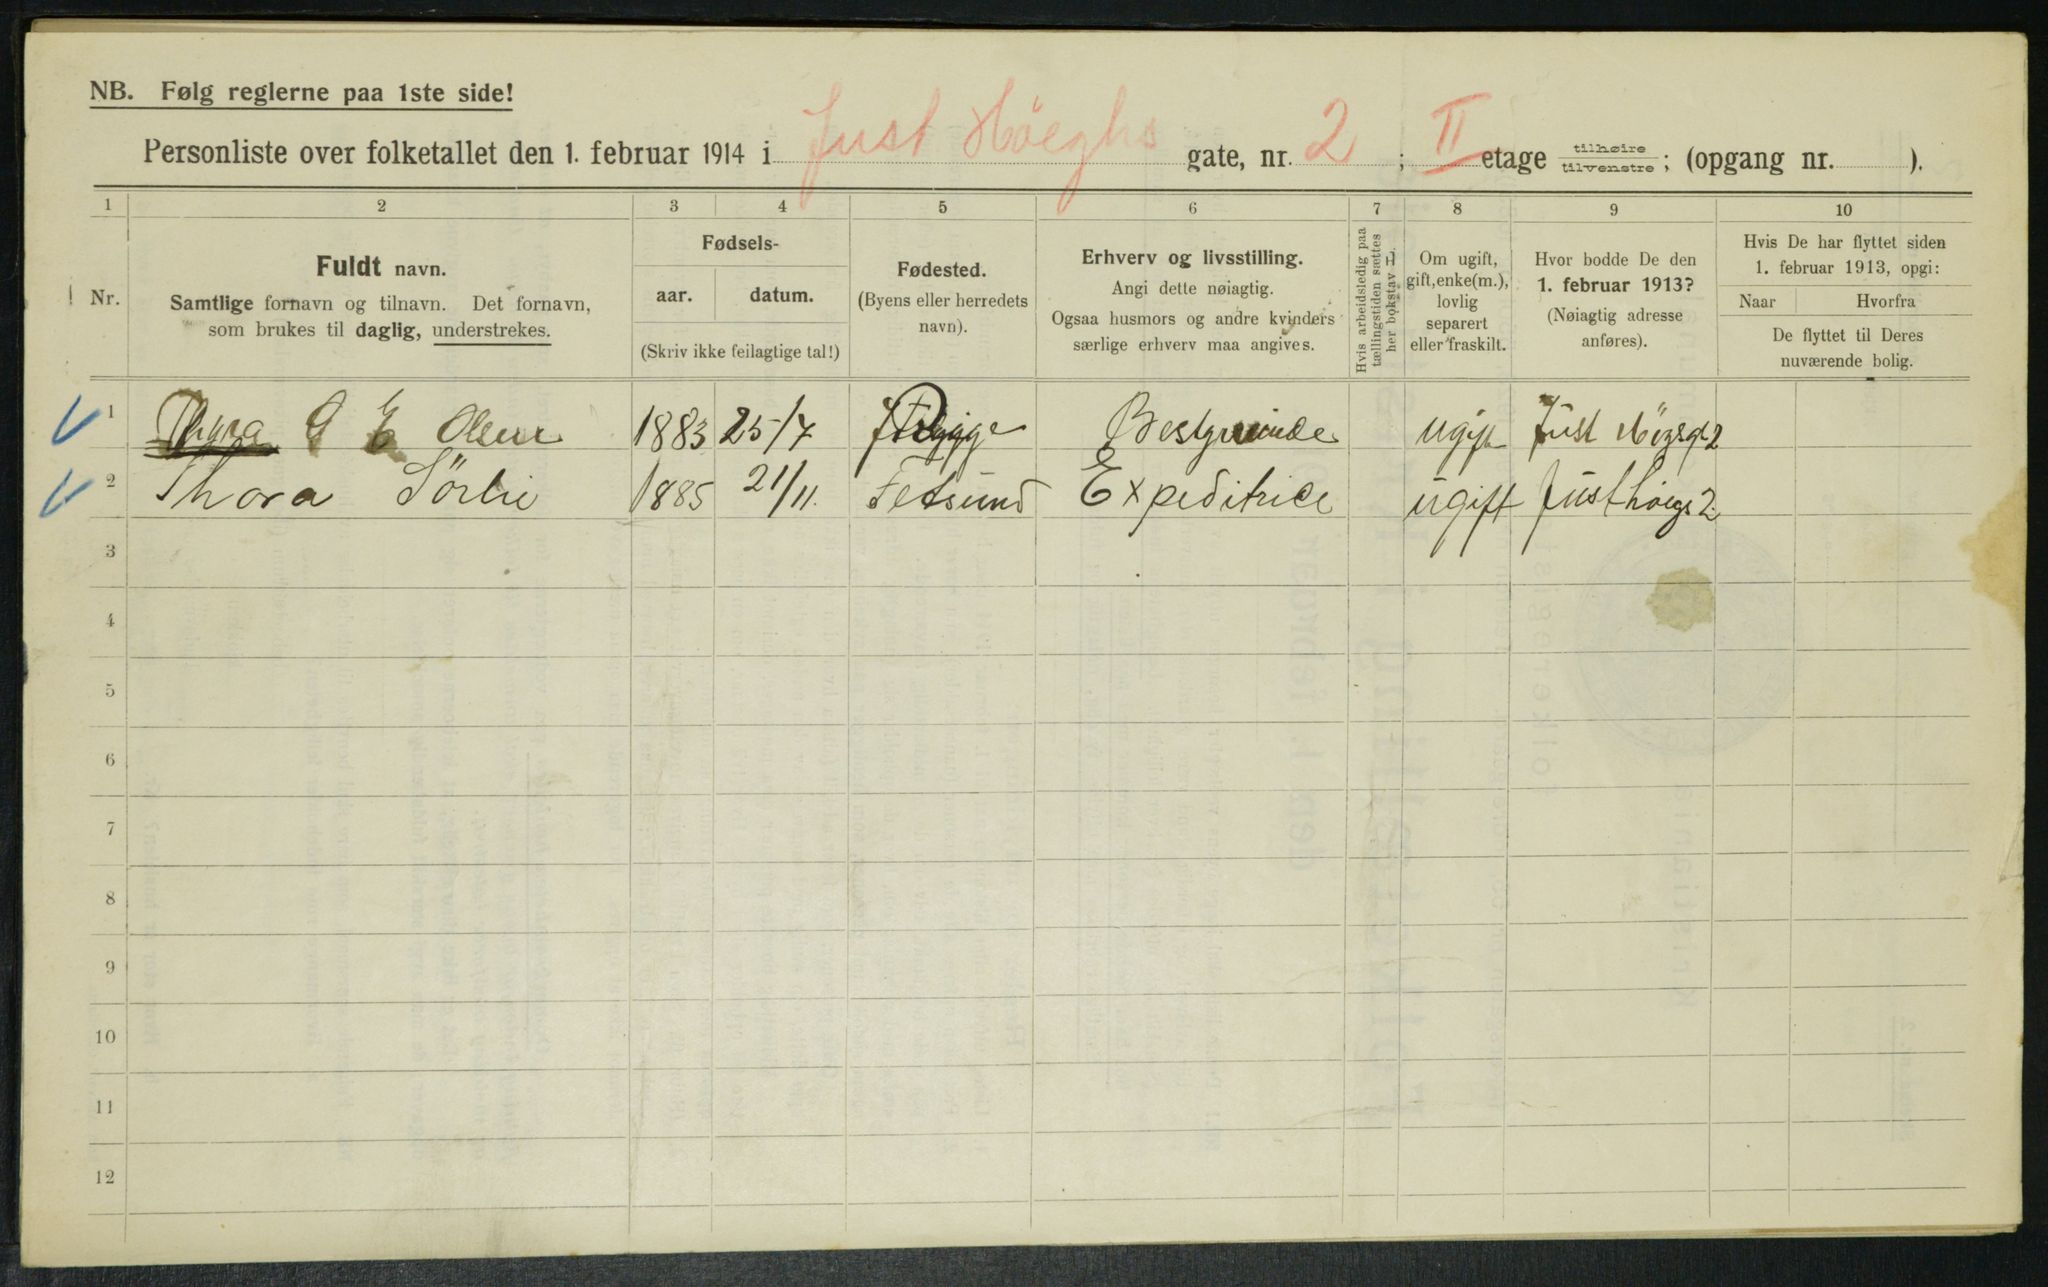 NB. Følg reglerne paa 1ste side!
Personliste over folketallet den 1. februar 1914 i Just Höeghs gate, nr. 2 ; II etage tilhøire tilvenstre ; (opgang nr. ).
1 2 3 4 5 6 7 8 9 10
Nr.
Fuldt navn.
Samtlige fornavn og tilnavn. Det fornavn,
som brukes til daglig, understrekes.
Fødsels-
aar. datum.
(Skriv ikke feilagtige tal!)
Fødested.
(Byens eller herredets
navn).
Erhverv og livsstilling.
Angi dette nøiagtig.
Ogsaa husmors og andre kvinders
særlige erhverv maa angives.
Hvis arbeidsledig paa
tællingstiden sættes
her bokstav L.
Om ugift,
gift, enke(m.),
lovlig
separert
eller fraskilt.
Hvor bodde De den
1. februar 1913?
(Nøiagtig adresse
anføres).
Hvis De har flyttet siden
1. februar 1913, opgi:
Naar Hvorfra
De flyttet til Deres
nuværende bolig.
1 Thyra G E Olsen 1883 25/7 ugift Just 2
2 Thora Sörlie 1885 21/11. Fetsund Expeditrice ugift Just höegs 2.
3
4
5
6
7
8
9
10
11
12